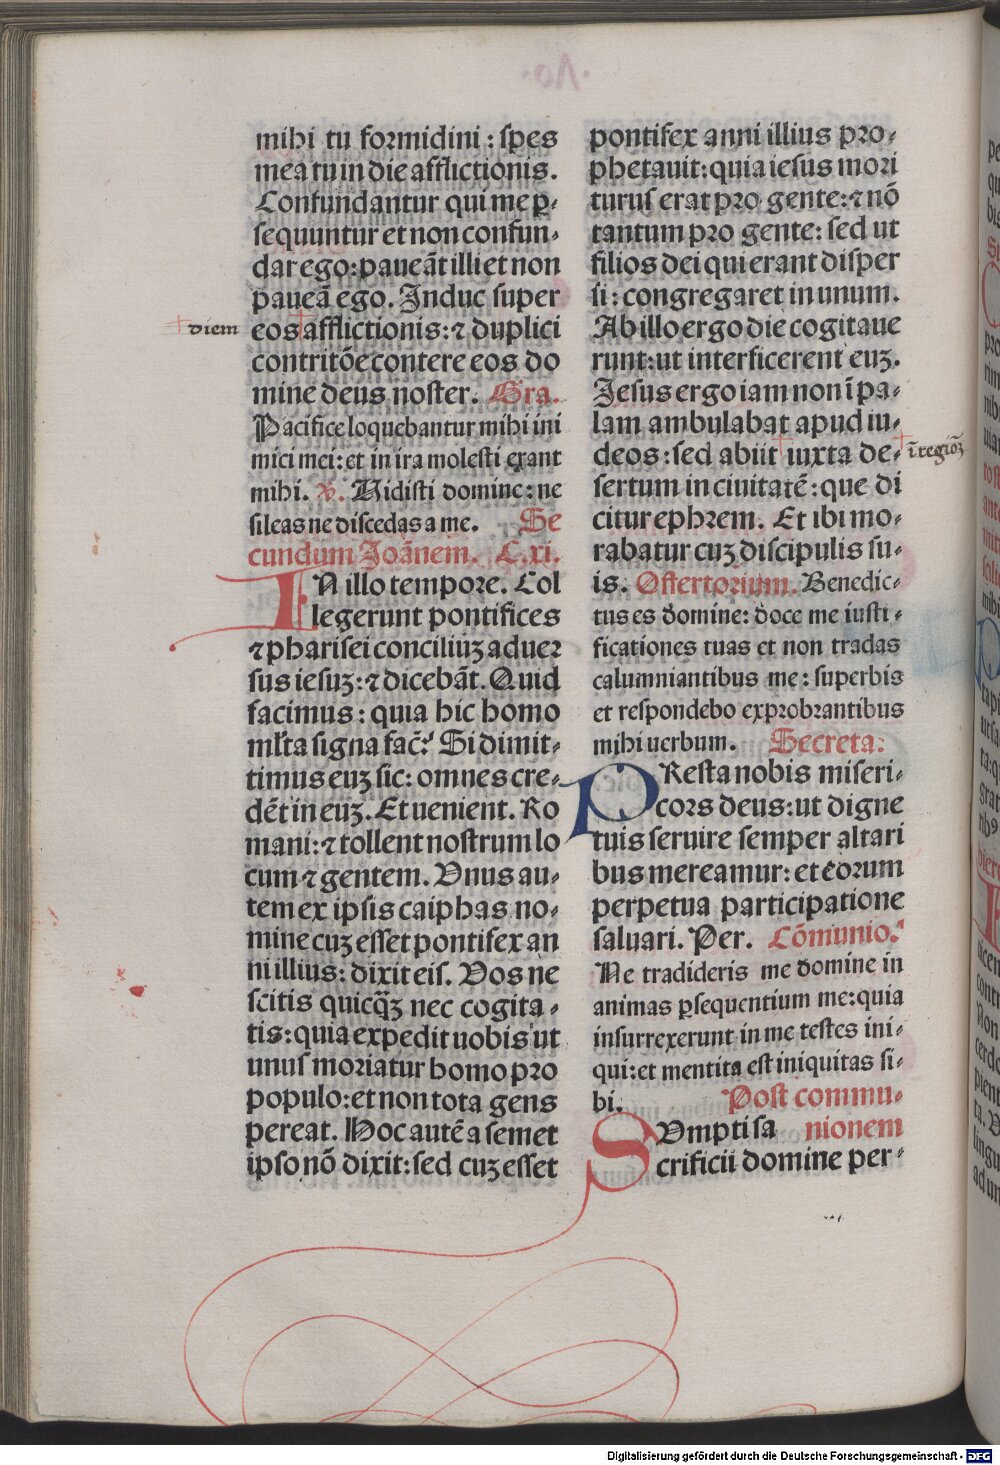 mihi tu formidini: spes
mea tu in die afflictionis.
Confundantur qui me ꝑ-
sequuntur et non confun-
dar ego: paueãt illi et non
paueã ego. Induc super
diem
eos afflictionis: ⁊ duplici
contritõe contere eos do
mine deus noster. Gra.
Pacifice loquebantur mihi ini
mici mei: et in ira molesti erant
mihi. ℣. Vidisti domine: ne
sileas ne discedas a me. Se
cundum Joãnem. C. xi.
IN illo tempore. Col
legerunt pontifices
⁊ pharisei conciliuꝫ aduer
sus iesuꝫ: ⁊ dicebãt. Quid
facimus: quia hic homo
mľta signa fac̃: Si dimit-
timus euꝫ sic: omnes cre-
dẽt in euꝫ. Et uenient. Ro
mani: ⁊ tollent nostrum lo
cum ⁊ gentem. Vnus au-
tem ex ipsis caiphas no-
mine cuꝫ esset pontifex an
ni illius: dixit eis. Vos ne
scitis quicq̃ꝫ nec cogita-
tis: quia expedit uobis ut
unus moriatur homo pro
populo: et non tota gens
pereat. Hoc autẽ a semet
ipso nõ dixit: sed cuꝫ esset
pontifex anni illius pro-
phetauit: quia iesus mori
turus erat pro gente: ⁊ nõ
tantum pro gente: sed ut
filios dei qui erant disper
si: congregaret in unum.
Ab illo ergo die cogitaue
runt: ut interficerent euꝫ.
Jesus ergo iam non ĩ pa-
lam ambulabat apud iu-
deos: sed abiit iuxta de-
ĩ regionẽ
sertum in ciuitatẽ: que di
citur ephrem. Et ibi mo-
rabatur cuꝫ discipulis su-
is. Offertorium. Benedic-
tus es domine: doce me iusti-
ficationes tuas et non tradas
calumniantibus me: superbis
et respondebo exprobrantibus
mihi uerbum. Secreta:
PResta nobis miseri-
cors deus: ut digne
tuis seruire semper altari
bus mereamur: et eorum
perpetua participatione
saluari. Per. Cõmunio.
Ne tradideris me domine in
animas ꝑsequentium me: quia
insurrexerunt in me testes ini-
qui: et mentita est iniquitas si-
bi. Post commu-
SVmpti sa nionem
crificii domine per-
Digitalisierung gefördert durch die Deutsche Forschungsgemeinschaft - DFG